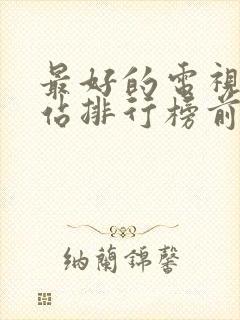 最好的電視
佔排行榜前
納蘭錦馨